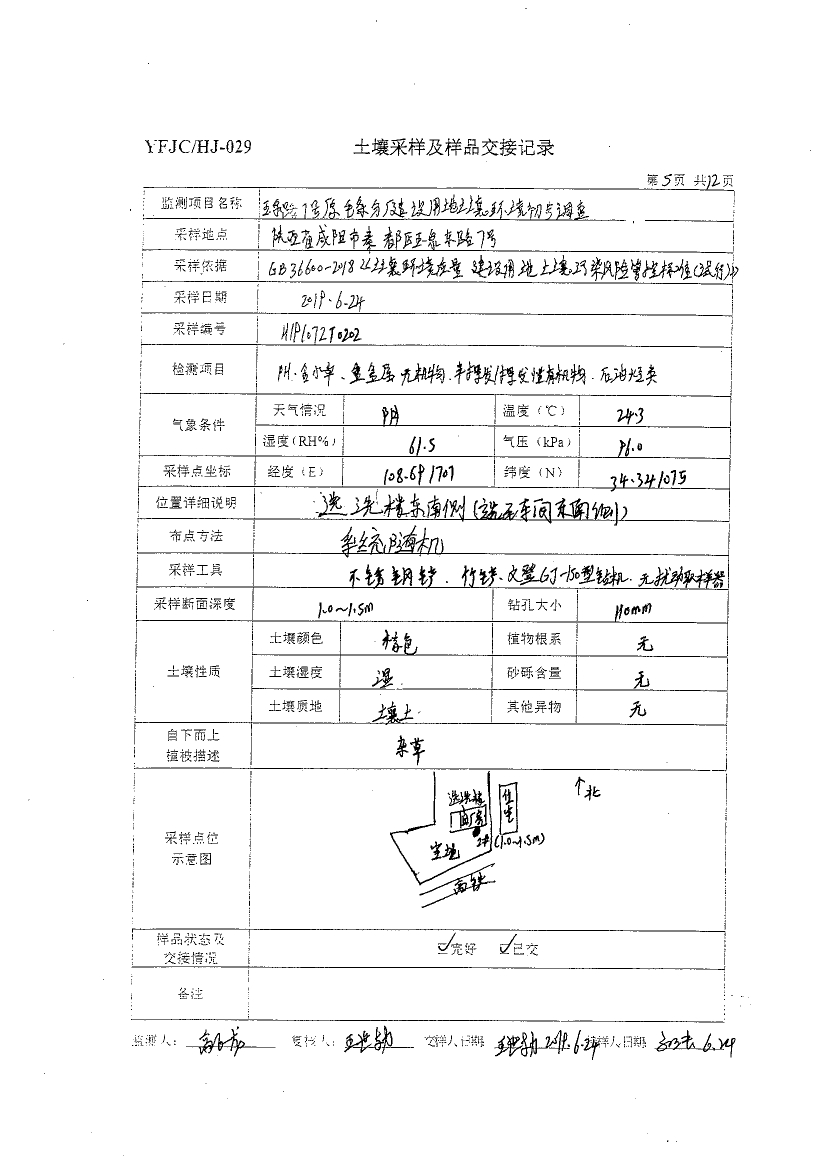 YFJC/HJ-029 土壤采样及样品交接记录
第5页 共12页
监测项目名称 路1号原 建设用地土壤环境初步调查
采样地点 陕西省咸阳市秦都区玉泉东路7号
采样依据 GB36600-2018《土壤环境质量 建设用地土壤污染风险管控标准(试行)》
采样日期 2019.6.24
采样编号 H191072T0202
检测项目 PH、含水率、重金属 无机物、半挥发/挥发性有机物、石油烃类
气象条件 天气情况 阴 温度(℃) 24.3
湿度(RH%) 61.5 气压(kPa) 96.0
采样点坐标 经度(E) 108.691707 纬度(N) 34.341075
位置详细说明 选洗楼东南侧( 车间东南侧)
布点方法 系统随机
采样工具 不锈钢铲、竹铲、 GJ-150型钻机、无扰动取样器
采样断面深度 1.0~1.5m 钻孔大小 110mm
土壤性质 土壤颜色 棕色 植物根系 无
土壤湿度 湿 砂砾含量 无
土壤质地 壤土 其他异物 无
自下而上
植被描述 杂草
采样点位
示意图
↑北
选洗楼
住宅
厂房
空地 2# (1.0~1.5m)
样品状态及
交接情况 ☑完好 ☑已交
备注
监测人: 复核人: 王世勃 交样人日期 王世勃 2019.6.24 接样人日期 6.24